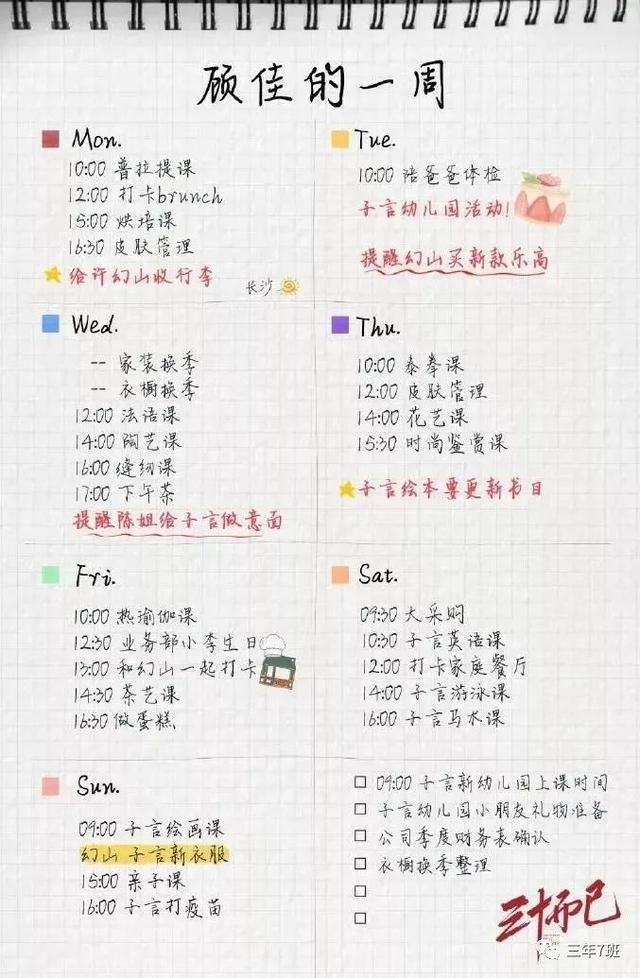 顾佳的一周
Mon.
10:00 普拉提课
12:00 打卡brunch
15:00 烘培课
16:30 皮肤管理
给许幻山收行李
长沙
Tue.
10:00 陪爸爸体检
子言幼儿园活动!
提醒幻山买新款乐高
Wed.
-- 家装换季
-- 衣橱换季
12:00 法语课
14:00 陶艺课
16:00 缝纫课
17:00 下午茶
提醒陈姐给子言做意面
Thu.
10:00 泰拳课
12:00 皮肤管理
14:00 花艺课
15:30 时尚鉴赏课
子言绘本要更新书目
Fri.
10:00 热瑜伽课
12:30 业务部小李生日
13:00 和幻山一起打卡
14:30 茶艺课
16:30 做蛋糕
Sat.
09:30 大采购
10:30 子言英语课
12:00 打卡家庭餐厅
14:00 子言游泳课
16:00 子言马术课
Sun.
09:00 子言绘画课
幻山 子言新衣服
15:00 亲子课
16:00 子言打疫苗
09:00 子言新幼儿园上课时间
子言幼儿园小朋友礼物准备
公司季度财务表确认
衣橱换季整理
三十而已
三年7班